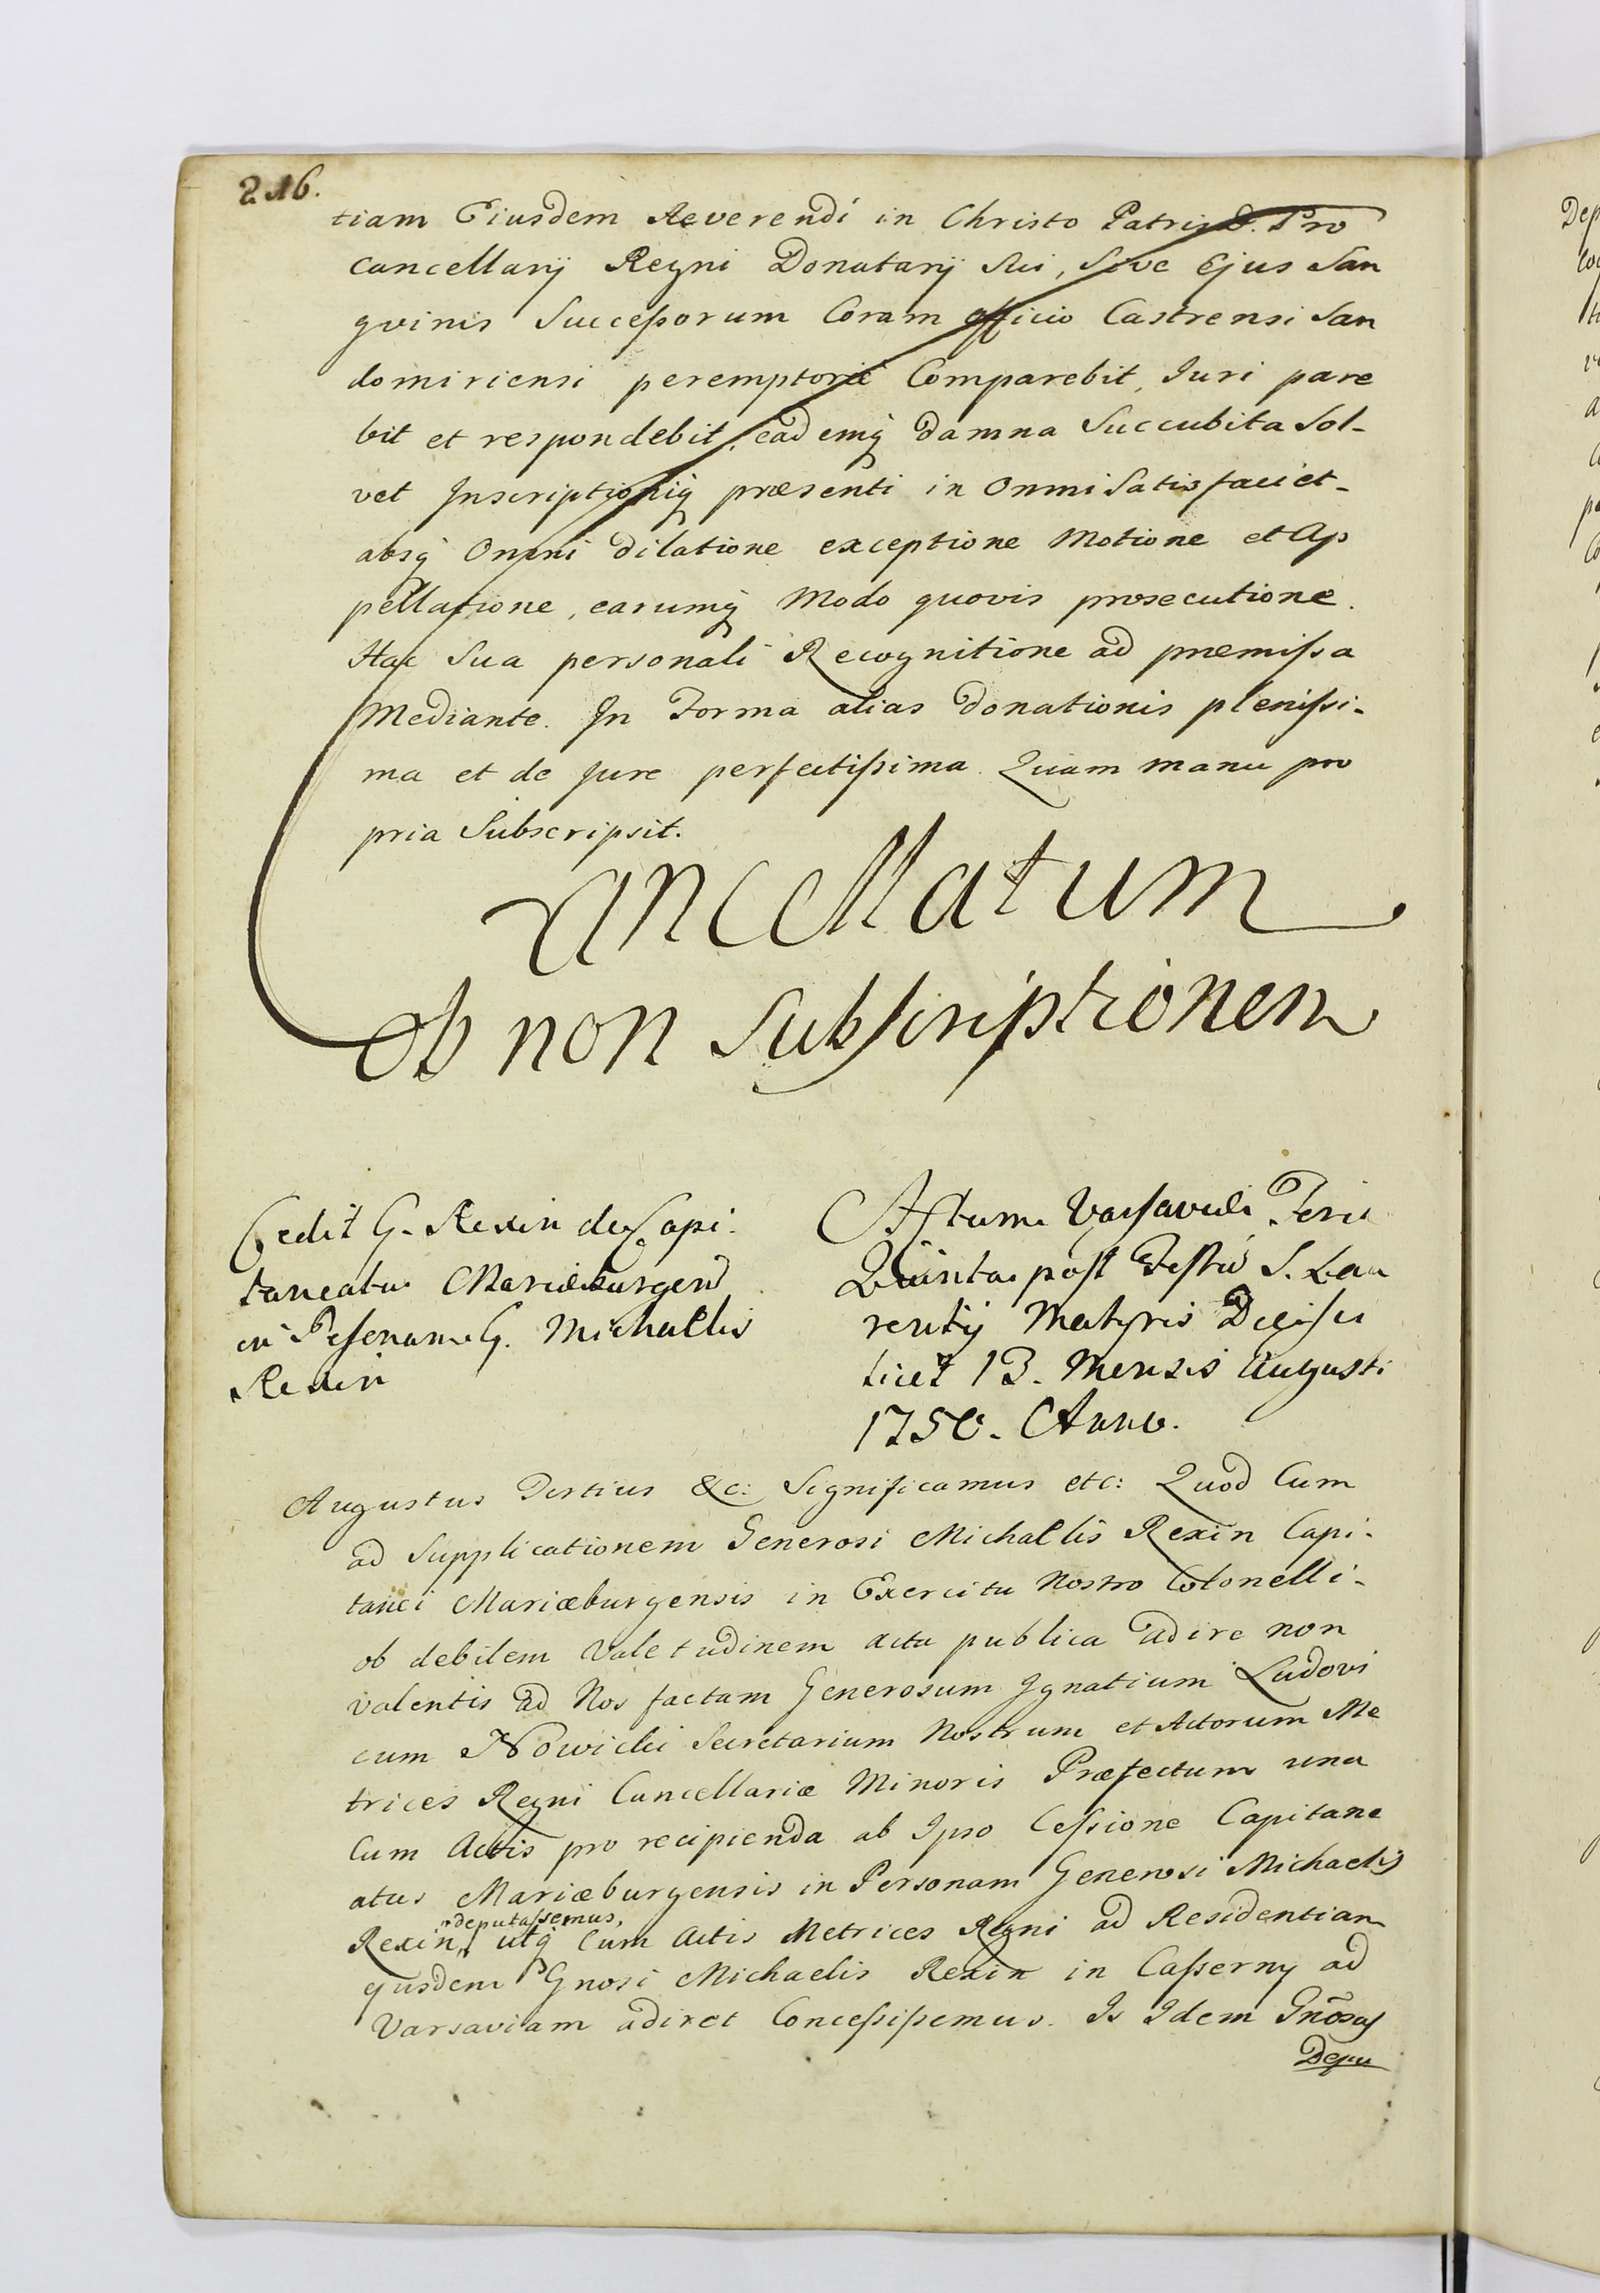 216.
tiam Eiusdem Reverendi in Christo Patris D. Pro
Cancellarij Regni Donatarij Sui, Sive Ejus San
gvinis Successorum Coram officio Castrensi San
domiriensi peremptorie Comparebit, Iuri pare
bit et respondebit, eademq damna Succubita Sol-
vet Inscriptioniq præsenti in Omni Satisfaciet-
absq Omni dilatione exceptione Motione et Ap
pellatione, earumq Modo quovis prosecutione.
Hac Sua personali Recognitione ad præmissa
Mediante. In Forma alias donationis plenissi-
ma et de Jure perfectissima Quam manu pro
pria Subscripsit.
Cancellatum
ob non Subscriptionem
Cedit G. Rexin de Capi-
taneatu Mariæburgen
in Personam G. Michaelis
Rexin
Actum Varsaviæ Feria
Quinta post Festū S. Lau
rentij Martyris Die scі
licet 13. Mensis Augusti
1750. Anno.
Augustus Tertius &c: Significamus etc: Quod Cum
ad Supplicationem Generosi Michaelis Rexin Capi-
tanei Mariæburgensis in Exercitu Nostro Colonelli-
ob debilem Valetudinem acta publica adire non
valentis ad Nos factam Generosum Ignatium Ludovi
cum Nowicki Secretarium Nostrum et Actorum Me
trices Regni Cancellariæ Minoris Præfectum una
Cum Actis pro recipienda ab Ipso Cessione Capitane
atus Mariæburgensis in Personam Generosi Michaelis
deputassemus,
Rexin, utq Cum Actis Metrices Regni ad Residentiam
ejusdem Gnosi Michaelis Rexin in Casserny ad
Varsaviam adiret Concessissemus. Is Idem Gnōsus
Depu